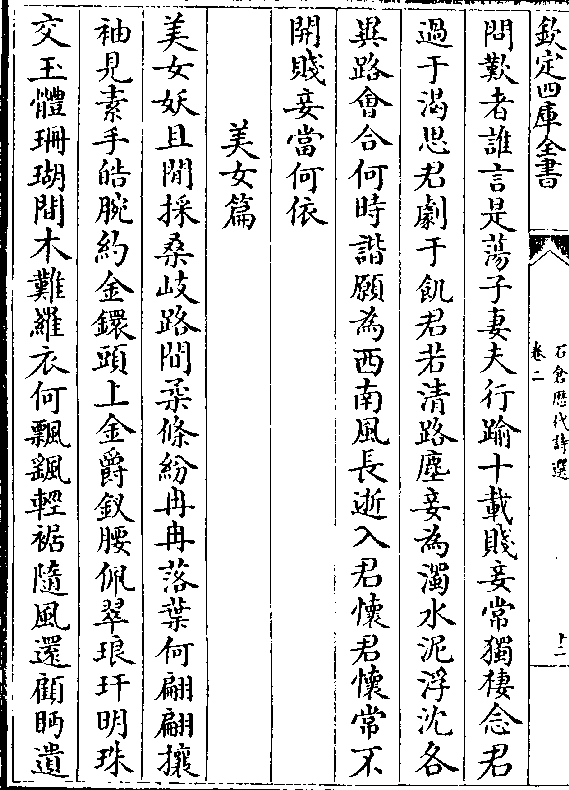 欽定四庫全書
石倉歷代詩選
卷二
十二
問歎者誰言是蕩子妻夫行踰十載賤妾常獨棲念君
過于渴思君劇于飢君若清路塵妾為濁水泥浮沈各
異路會合何時諧願為西南風長逝入君懷君懷常不
開賤妾當何依
美女篇
美女妖且閒採桑岐路間柔條紛冉冉落葉何翩翩攘
袖見素手皓腕約金鐶頭上金爵釵腰佩翠琅玕明珠
交玉體珊瑚間木難羅衣何飄颻輕裾隨風還顧眄遺